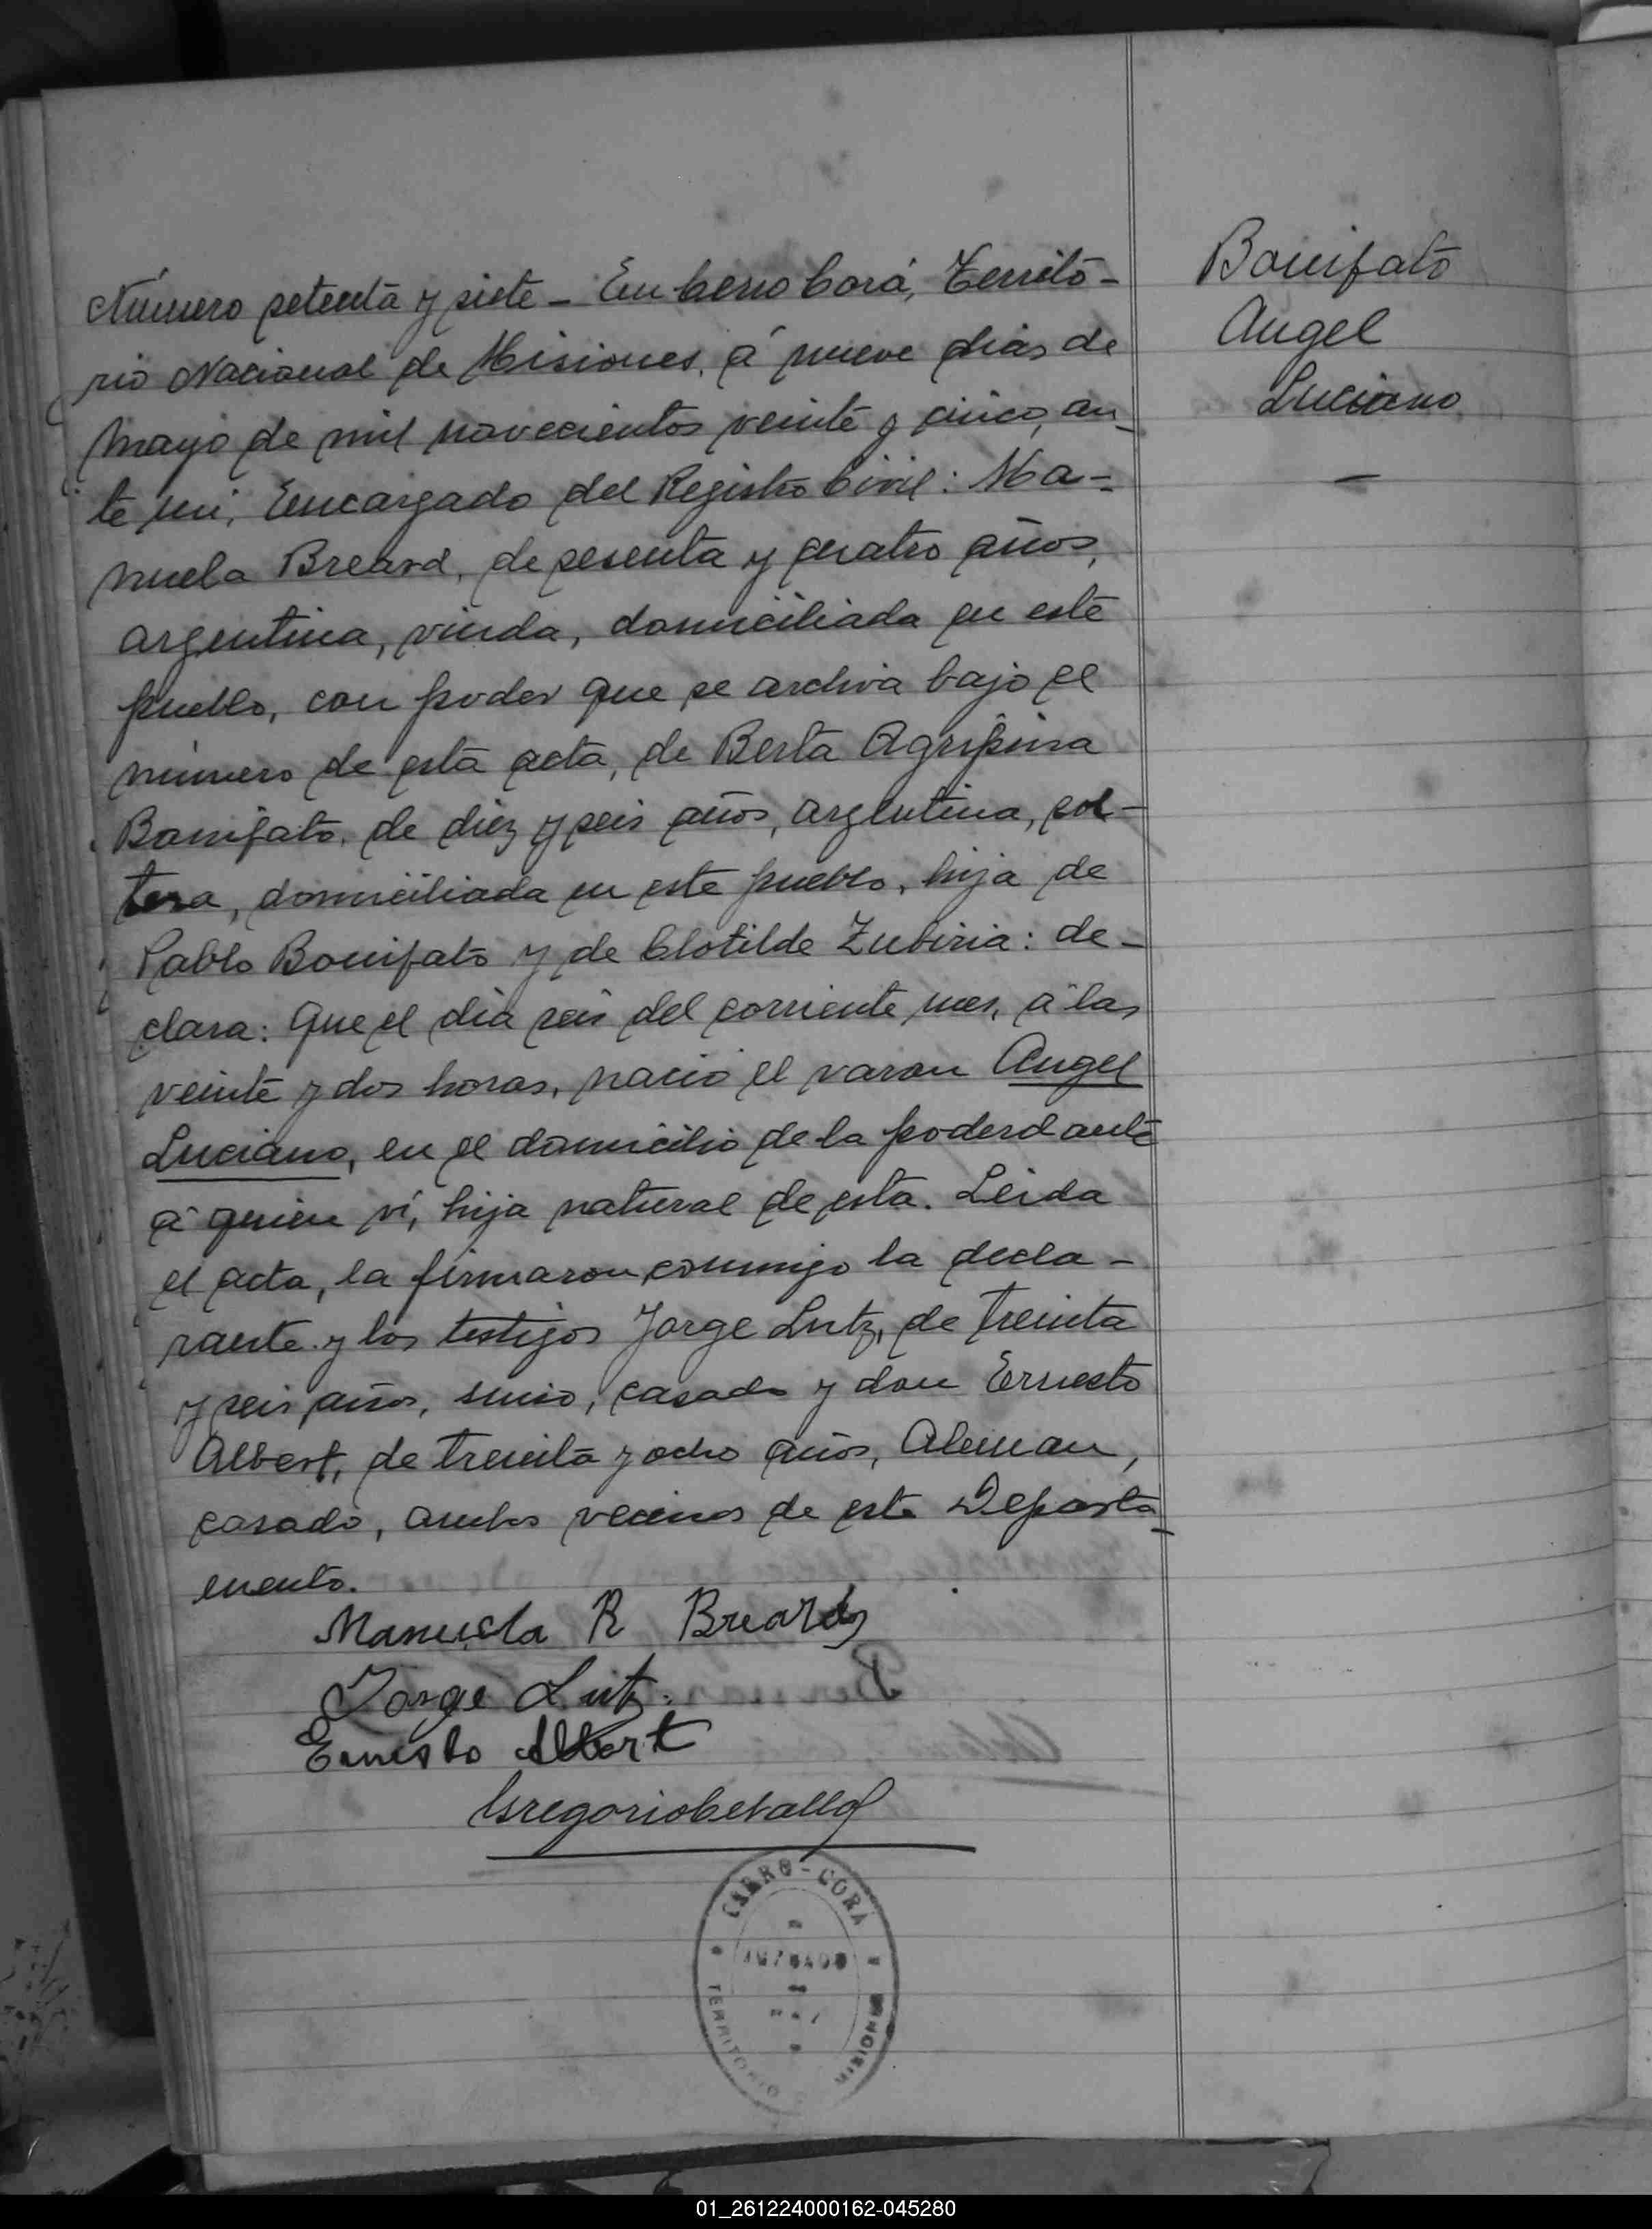 Bonifato
Angel
Luciano
Número setenta y siete - En Cerro Corá, Territo-
rio Nacional de Misiones, á nueve dias de
Mayo de mil novecientos veinte y cinco, an-
te mi, Encargado del Registro Civil: Ma-
nuela Breard, de sesenta y cuatro años,
argentina, viuda, domiciliada en este
pueblo, con poder que se archiva bajo el
número de esta acta, de Berta Agripina
Bonifato, de diez y seis años, argentina, sol-
tera, domiciliada en este pueblo, hija de
Pablo Bonifato y de Clotilde Zubiria: de-
clara: Que el dia seis del corriente mes, á las
veinte y dos horas, nació el varon Angel
Luciano, en el domicilio de la poderdante
á quien ví, hija natural de esta. Leida
el acta, la firmaron conmigo la decla-
rante y los testigos Jorge Lutz, de treinta
y seis años, suizo, casado y don Ernesto
Albert, de treinta y ocho años, Aleman,
casado, ambos vecinos de este Departa-
mento.
Manuela R Breard
Jorge Lutz.
Ernesto Albert
Gregorio
CERRO-CORÁ
JUZGADO
TERRITORIO
MISIONES
01_261224000162-045280